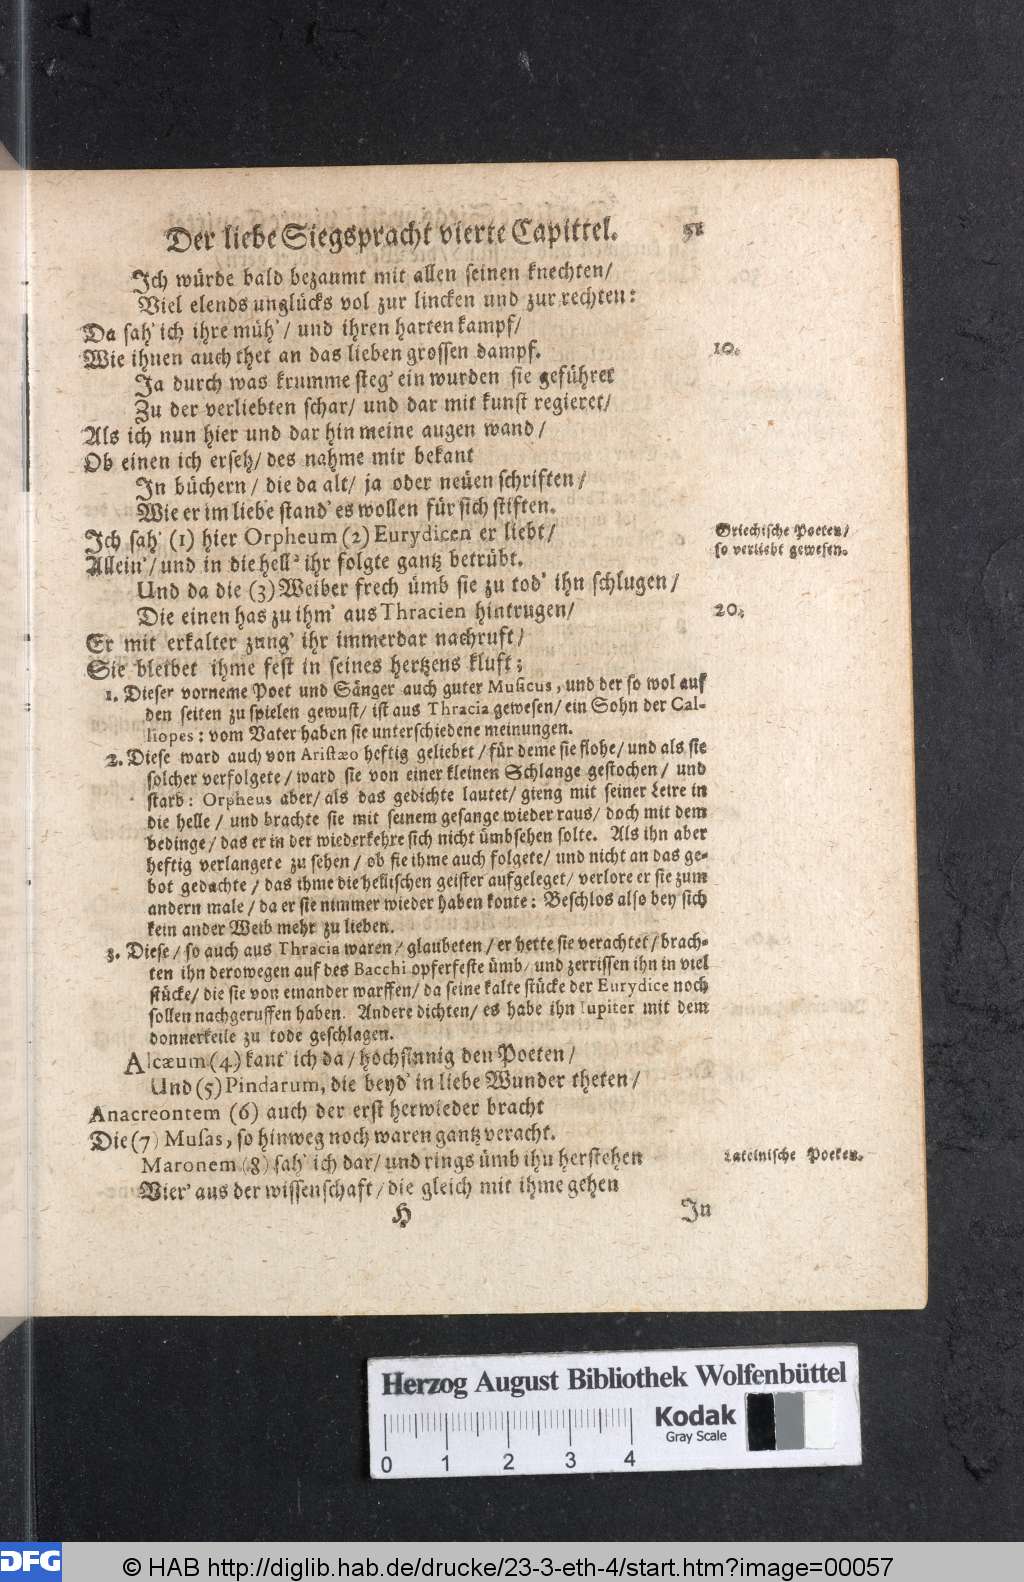 Der liebe Siegspracht vierte Capittel. 51
Ich würde bald bezaumt mit allen seinen knechten/
Viel elends unglücks vol zur lincken und zur rechten:
Da sah' ich ihre müh'/ und ihren harten kampf/
Wie ihnen auch thet an das lieben grossen dampf. 10.
Ja durch was krumme steg' ein wurden sie geführet
Zu der verliebten schar/ und dar mit kunst regieret/
Als ich nun hier und dar hin meine augen wand/
Ob einen ich erseh/ des nahme mir bekant
In büchern/ die da alt/ ja oder neüen schriften/
Wie er im liebe stand' es wollen für sich stiften.
Ich sah' (1) hier Orpheum (2) Eurydicen er liebt/ Griechische Poeten/
Allein'/ und in die hell' ihr folgte gantz betrübt. so verliebt gewesen.
Und da die (3) Weiber frech ümb sie zu tod' ihn schlugen/
Die einen has zu ihm' aus Thracien hintrugen/ 20.
Er mit erkalter zung' ihr immerdar nachruft/
Sie bleibet ihme fest in seines hertzens kluft;
1. Dieser vorneme Poet und Sänger auch guter Musicus, und der so wol auf
den seiten zu spielen gewust/ ist aus Thracia gewesen/ ein Sohn der Cal-
liopes: vom Vater haben sie unterschiedene meinungen.
2. Diese ward auch von Aristæo heftig geliebet/ für deme sie flohe/ und als sie
solcher verfolgete/ ward sie von einer kleinen Schlange gestochen/ und
starb: Orpheus aber/ als das gedichte lautet/ gieng mit seiner Leire in
die helle/ und brachte sie mit seinem gesange wieder raus/ doch mit dem
bedinge/ das er in der wiederkehre sich nicht ümbsehen solte. Als ihn aber
heftig verlangete zu sehen/ ob sie ihme auch folgete/ und nicht an das ge-
bot gedachte/ das ihme die hellischen geister aufgeleget/ verlore er sie zum
andern male/ da er sie nimmer wieder haben konte: Beschlos also bey sich
kein ander Weib mehr zu lieben.
3. Diese/ so auch aus Thracia waren/ glaubeten/ er hette sie verachtet/ brach-
ten ihn derowegen auf des Bacchi opferfeste ümb/ und zerrissen ihn in viel
stücke/ die sie von einander warffen/ da seine kalte stücke der Eurydice noch
sollen nachgeruffen haben. Andere dichten/ es habe ihn Iupiter mit dem
donnerkeile zu tode geschlagen.
Alcæum (4) kant' ich da/ hochsinnig den Poeten/
Und (5) Pindarum, die beyd' in liebe Wunder theten/
Anacreontem (6) auch der erst herwieder bracht
Die (7) Musas, so hinweg noch waren gantz veracht.
Maronem (8) sah' ich dar/ und rings ümb ihn herstehen Lateinische Poeten.
Vier' aus der wissenschaft/ die gleich mit ihme gehen
H In
Herzog August Bibliothek Wolfenbüttel
Kodak
Gray Scale
0 1 2 3 4
DFG © HAB http://diglib.hab.de/drucke/23-3-eth-4/start.htm?image=00057